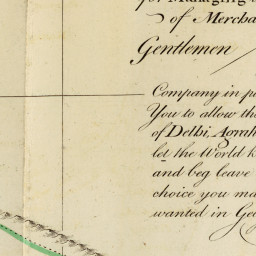 of Mercha
Gentlemen
Company in p
You to allow th
of Delhi, Agrah
let the World k
and beg leave
choice you ma
wanted in Geo